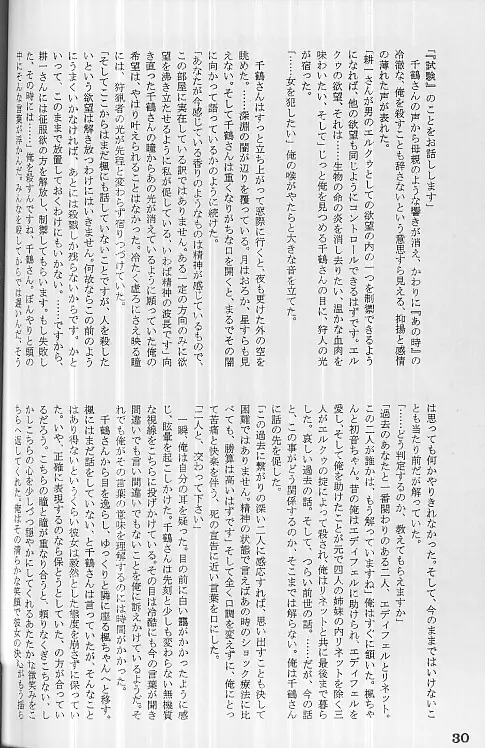 『試験』のことをお話しします」
千鶴さんの声から母親のような響きが消え、かわりに『あの時』の
冷徹な、俺を殺すことも辞さないという意思すら見える、抑揚と感情
の薄れた声が表れた。
「耕一さんが男のエルクゥとしての欲望の内の一つを制禦できるよう
になれば、他の欲望も同じようにコントロールできるはずです。エル
クゥの欲望。それは……生物の命の炎を消し去りたい、温かな血肉を
味わいたい、そして」じっと俺を見つめる千鶴さんの目に、狩人の光
が宿った。
「……女を犯したい」俺の喉がやたらと大きな音を立てた。
千鶴さんはすっと立ち上がって窓際に行くと、夜も更けた外の空を
眺めた。……深淵の闇が辺りを覆っている。月はおろか、星すらも見
えない。そして千鶴さんは重くなりがちな口を開くと、まるでその闇
に向かって語っているかのように続けた。
「あなたが今感じている香りのようなものは精神が感じているもので、
この部屋に実在している訳ではありません。ある一定の方向のみに欲
望を沸き立たせるように私が促している、いわば精神の波長です」向
き直った千鶴さんの瞳からあの光が消えているように願っていた俺の
希望は、やはり叶えられることはなかった。冷たく虚ろにさえ映る瞳
には、狩猟者の光が先程と変わらず宿りつづけていた。
「そしてここからはまだ楓にも話していないことですが、人を殺した
いという欲望は解き放つわけにはいきません。何故ならこの前のよう
にうまくいかなければ、あとには殺戮しか残らないからです。かと
いって、このまま放置しておくわけにもいかない。……ですから、
耕一さんには征服欲の方を解放し、制禦してもらいます。もし失敗し
た、その時には……」俺を殺すんですね、千鶴さん。ぼんやりと頭の
中にそんな言葉が浮かんだ。みんなを殺してからでは遅いんだ、そう
は思っても何かやりきれなかった。そして、今のままではいけないこ
とも当たり前だが解っていた。
「……どう判定するのか、教えてもらえますか」
「過去のあなたと一番関わりのある二人、エディフェルとリネット。
この二人が誰かは、もう解っていますね」俺はすぐに頷いた。楓ちゃ
んと初音ちゃん。昔の俺はエディフェルに助けられ、エディフェルを
愛し、そして俺を助けたことが元で四人の姉妹の内リネットを除く三
人がエルクゥの掟によって殺され、俺はリネットと共に最後まで暮ら
した。哀しい過去の話。そして、つらい前世の話。……だが、今の話
と、この事がどう関係するのか、そこまでは解らない。俺は千鶴さん
に話の先を促した。
「この過去に繋がりの深い二人に感応すれば、思い出すことも決して
困難ではありません。精神の状態で言えばあの時のショック療法に比
べても、勝算は高いはずです」そして全く口調を変えずに、俺にとっ
て苦痛と快楽を伴う、死の宣告に近い言葉を口にした。
「二人と、交わって下さい」
一瞬、俺は自分の耳を疑った。目の前に白い靄がかかったように感
じ、眩暈を起こしかけた。千鶴さんは先刻と少しも変わらない無機質
な視線をこちらに投げかけている。その目は冷酷にも今の言葉が聞き
間違いでも言い間違いでもないことを俺に訴えかけているようだ。そ
れでも俺がその言葉の意味を理解するのには時間がかかった。
千鶴さんから目を逸らし、ゆっくりと隣に座る楓ちゃんへと移す。
楓にはまだ話をしていない、と千鶴さんは言っていたが、そんなこと
はあり得ないというくらい彼女は毅然とした態度を崩さずに保ってい
た。いや、正確に表現するのなら保とうとしていた、の方が合ってい
るだろう。こちらの瞳と瞳が重なり合うと、頼りなくぎこちない、し
かしこちらの心を少しづつ穏やかにしてくれるあたたかな微笑みをこ
ちらへ返してくれた。俺はその清らかな笑顔で彼女の決心がもう揺ら
30